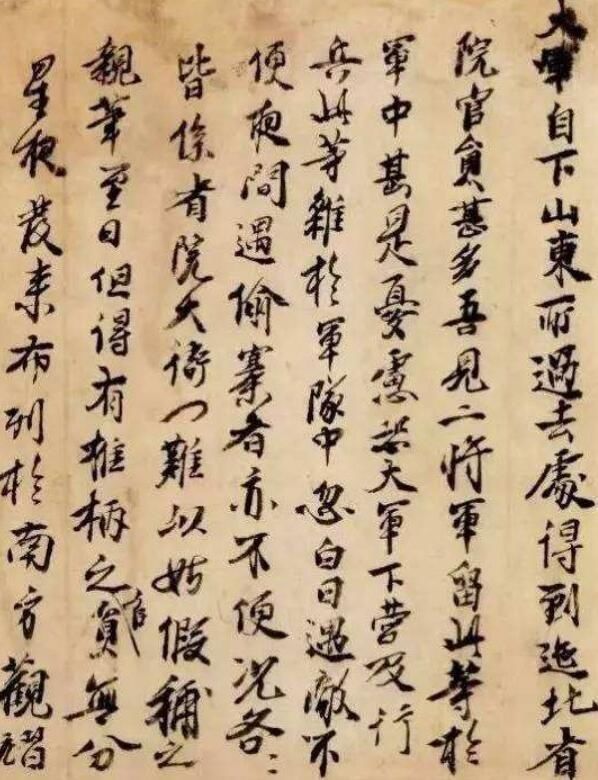 大軍自下山東所過去處得到迤北省
院官員甚多吾見二將軍留此等於
軍中甚是憂慮恐大軍下營及行
兵此等雜於軍隊中忽白日遇敵不
便夜間遇偷寨者亦不便況各〻
皆係省院大衙門難以姑假補之
親筆至日但得有椎柄之員官無分
星夜發來布列於南方觀